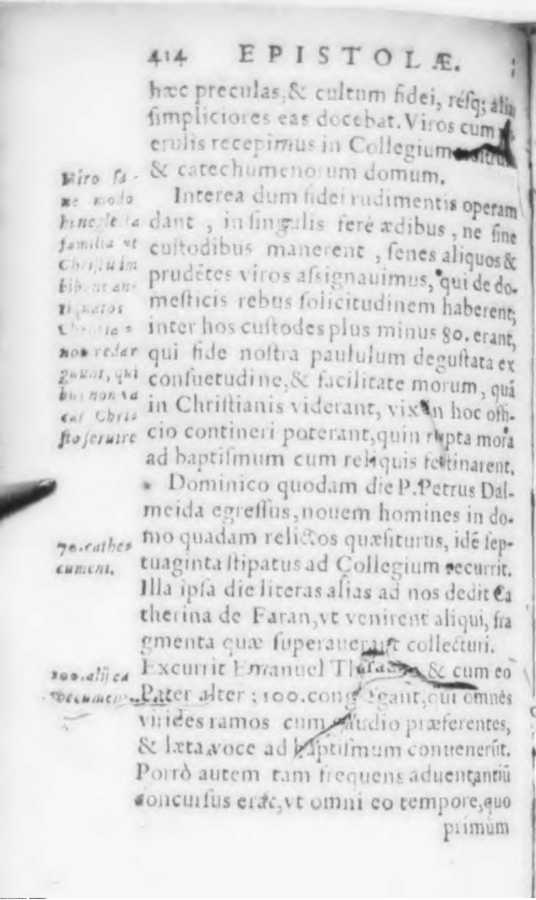 414 EPISTOLÆ.
hæc preculas,& cultum fidei, résq; alias
simpliciores eas docebat. Viros cum
erulis recepimus in Collegium nostrum
& catechumenorum domum.
Interea dum fidei rudimentis operam
dant , in singulis ferè ædibus , ne sine
custodibus manerent , senes aliquos &
prudētes viros assignauimus, qui de do-
mesticis rebus solicitudinem haberent;
inter hos custodes plus minus 80. erant,
qui fide nostra paululum degustata ex
consuetudine,& facilitate morum, quā
in Christianis viderant, vix in hoc offi-
cio contineri poterant,quin rupta mora
ad baptismum cum reliquis festinarent.
Dominico quodam die P. Petrus Dal-
meida egressus, nouem homines in do-
mo quadam relictos quæsiturus, idē sep-
tuaginta stipatus ad Collegium recurrit.
Illa ipsa die literas alias ad nos dedit Ca
therina de Faran,vt venirent aliqui, fra
gmenta quæ superauerant collecturi.
Excurrit Emanuel & cum eo
Pater alter ; 100. congregant,qui omnēs
virides ramos cum gaudio præferentes,
& læta voce ad baptismum conuenerūt.
Porrò autem tam frequens aduentantiū
concursus erat,vt omni eo tempore,quo
primùm
Miro sa-
ne modo
familia vt
Christum
non
qui
non va
cat Chris
sto seruire
70. cathe
cumeni.
100. alij ca